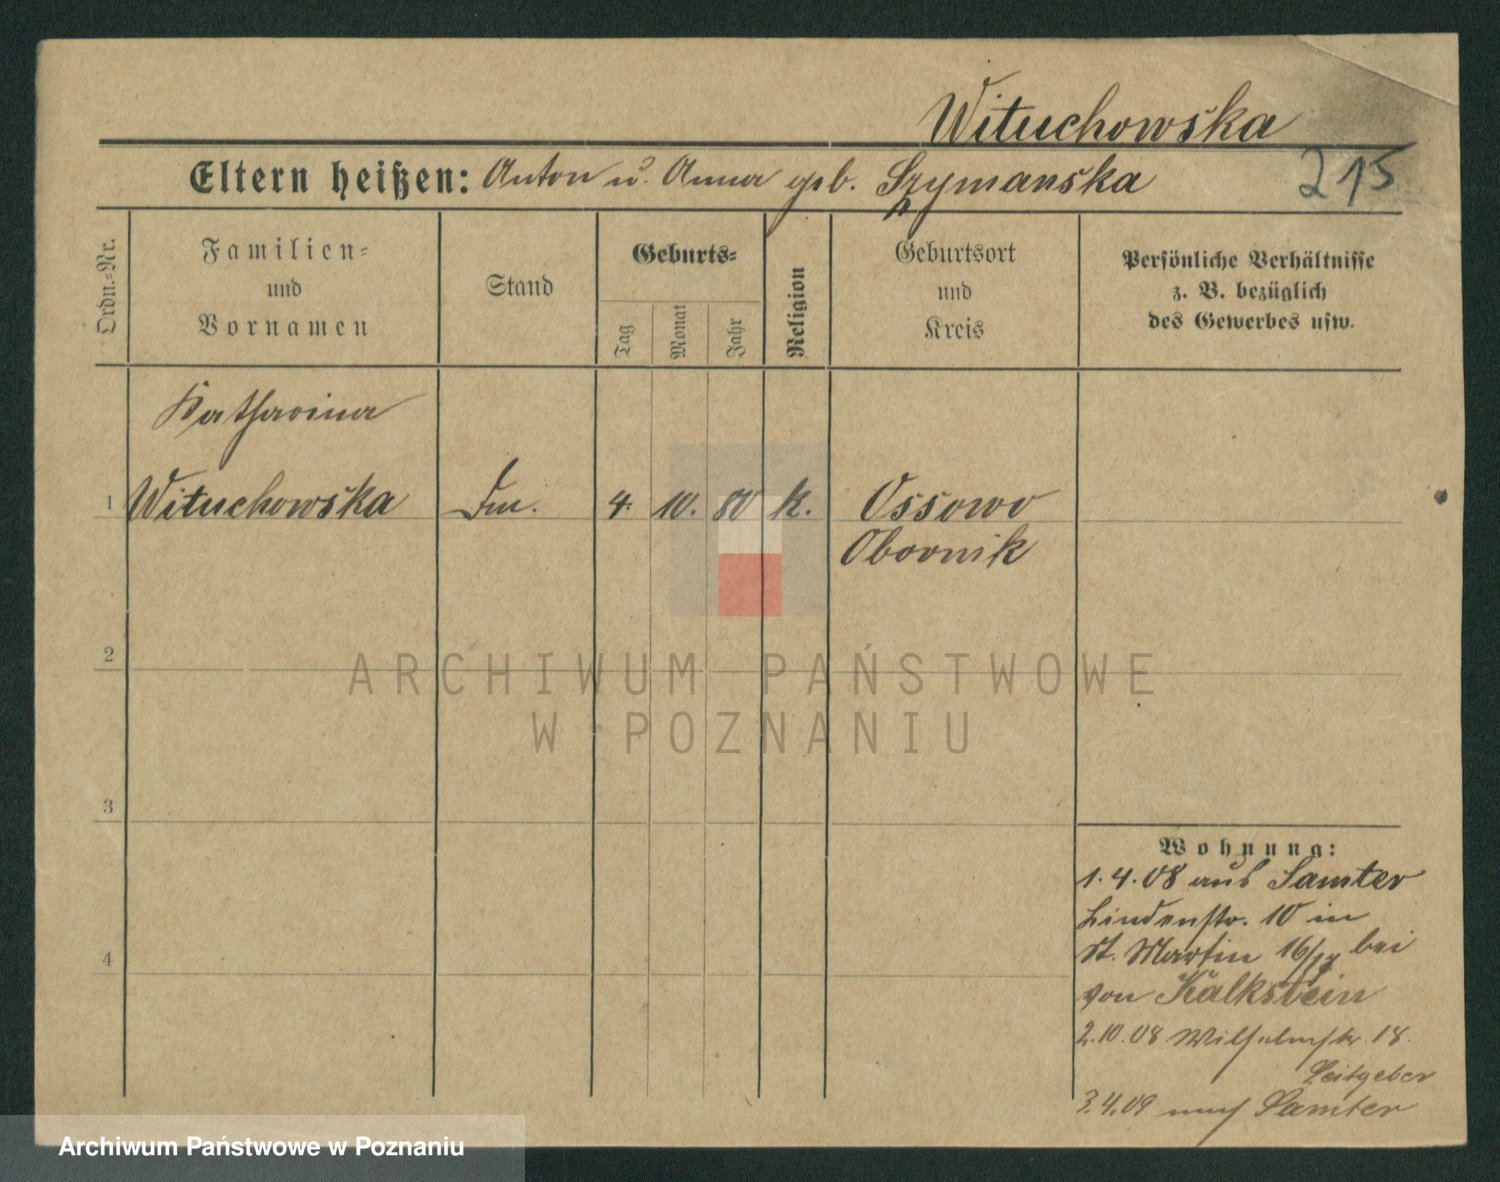 Wituchowska
Eltern heißen: Anton u. Anna geb. Szymanska
215
Ordn.-Nr.
Familien-
und
Vornamen
Stand
Geburts-
Tag
Monat
Jahr
Religion
Geburtsort
und
Kreis
Persönliche Verhältnisse
z. B. bezüglich
des Gewerbes usw.
Katharina
1 Wituchowska 4. 10. 80 k. Ossowo
Obornik
2
ARCHIWUM PAŃSTWOWE
W POZNANIU
3
Wohnung:
1.4.08 aus Samter
Lindenstr. 10 in
St. Martin 16/17 bei
von Kalkstein
2.10.08 Wilhelmstr. 18.
Leitgeber
4
3.4.09 nach Samter
Archiwum Państwowe w Poznaniu